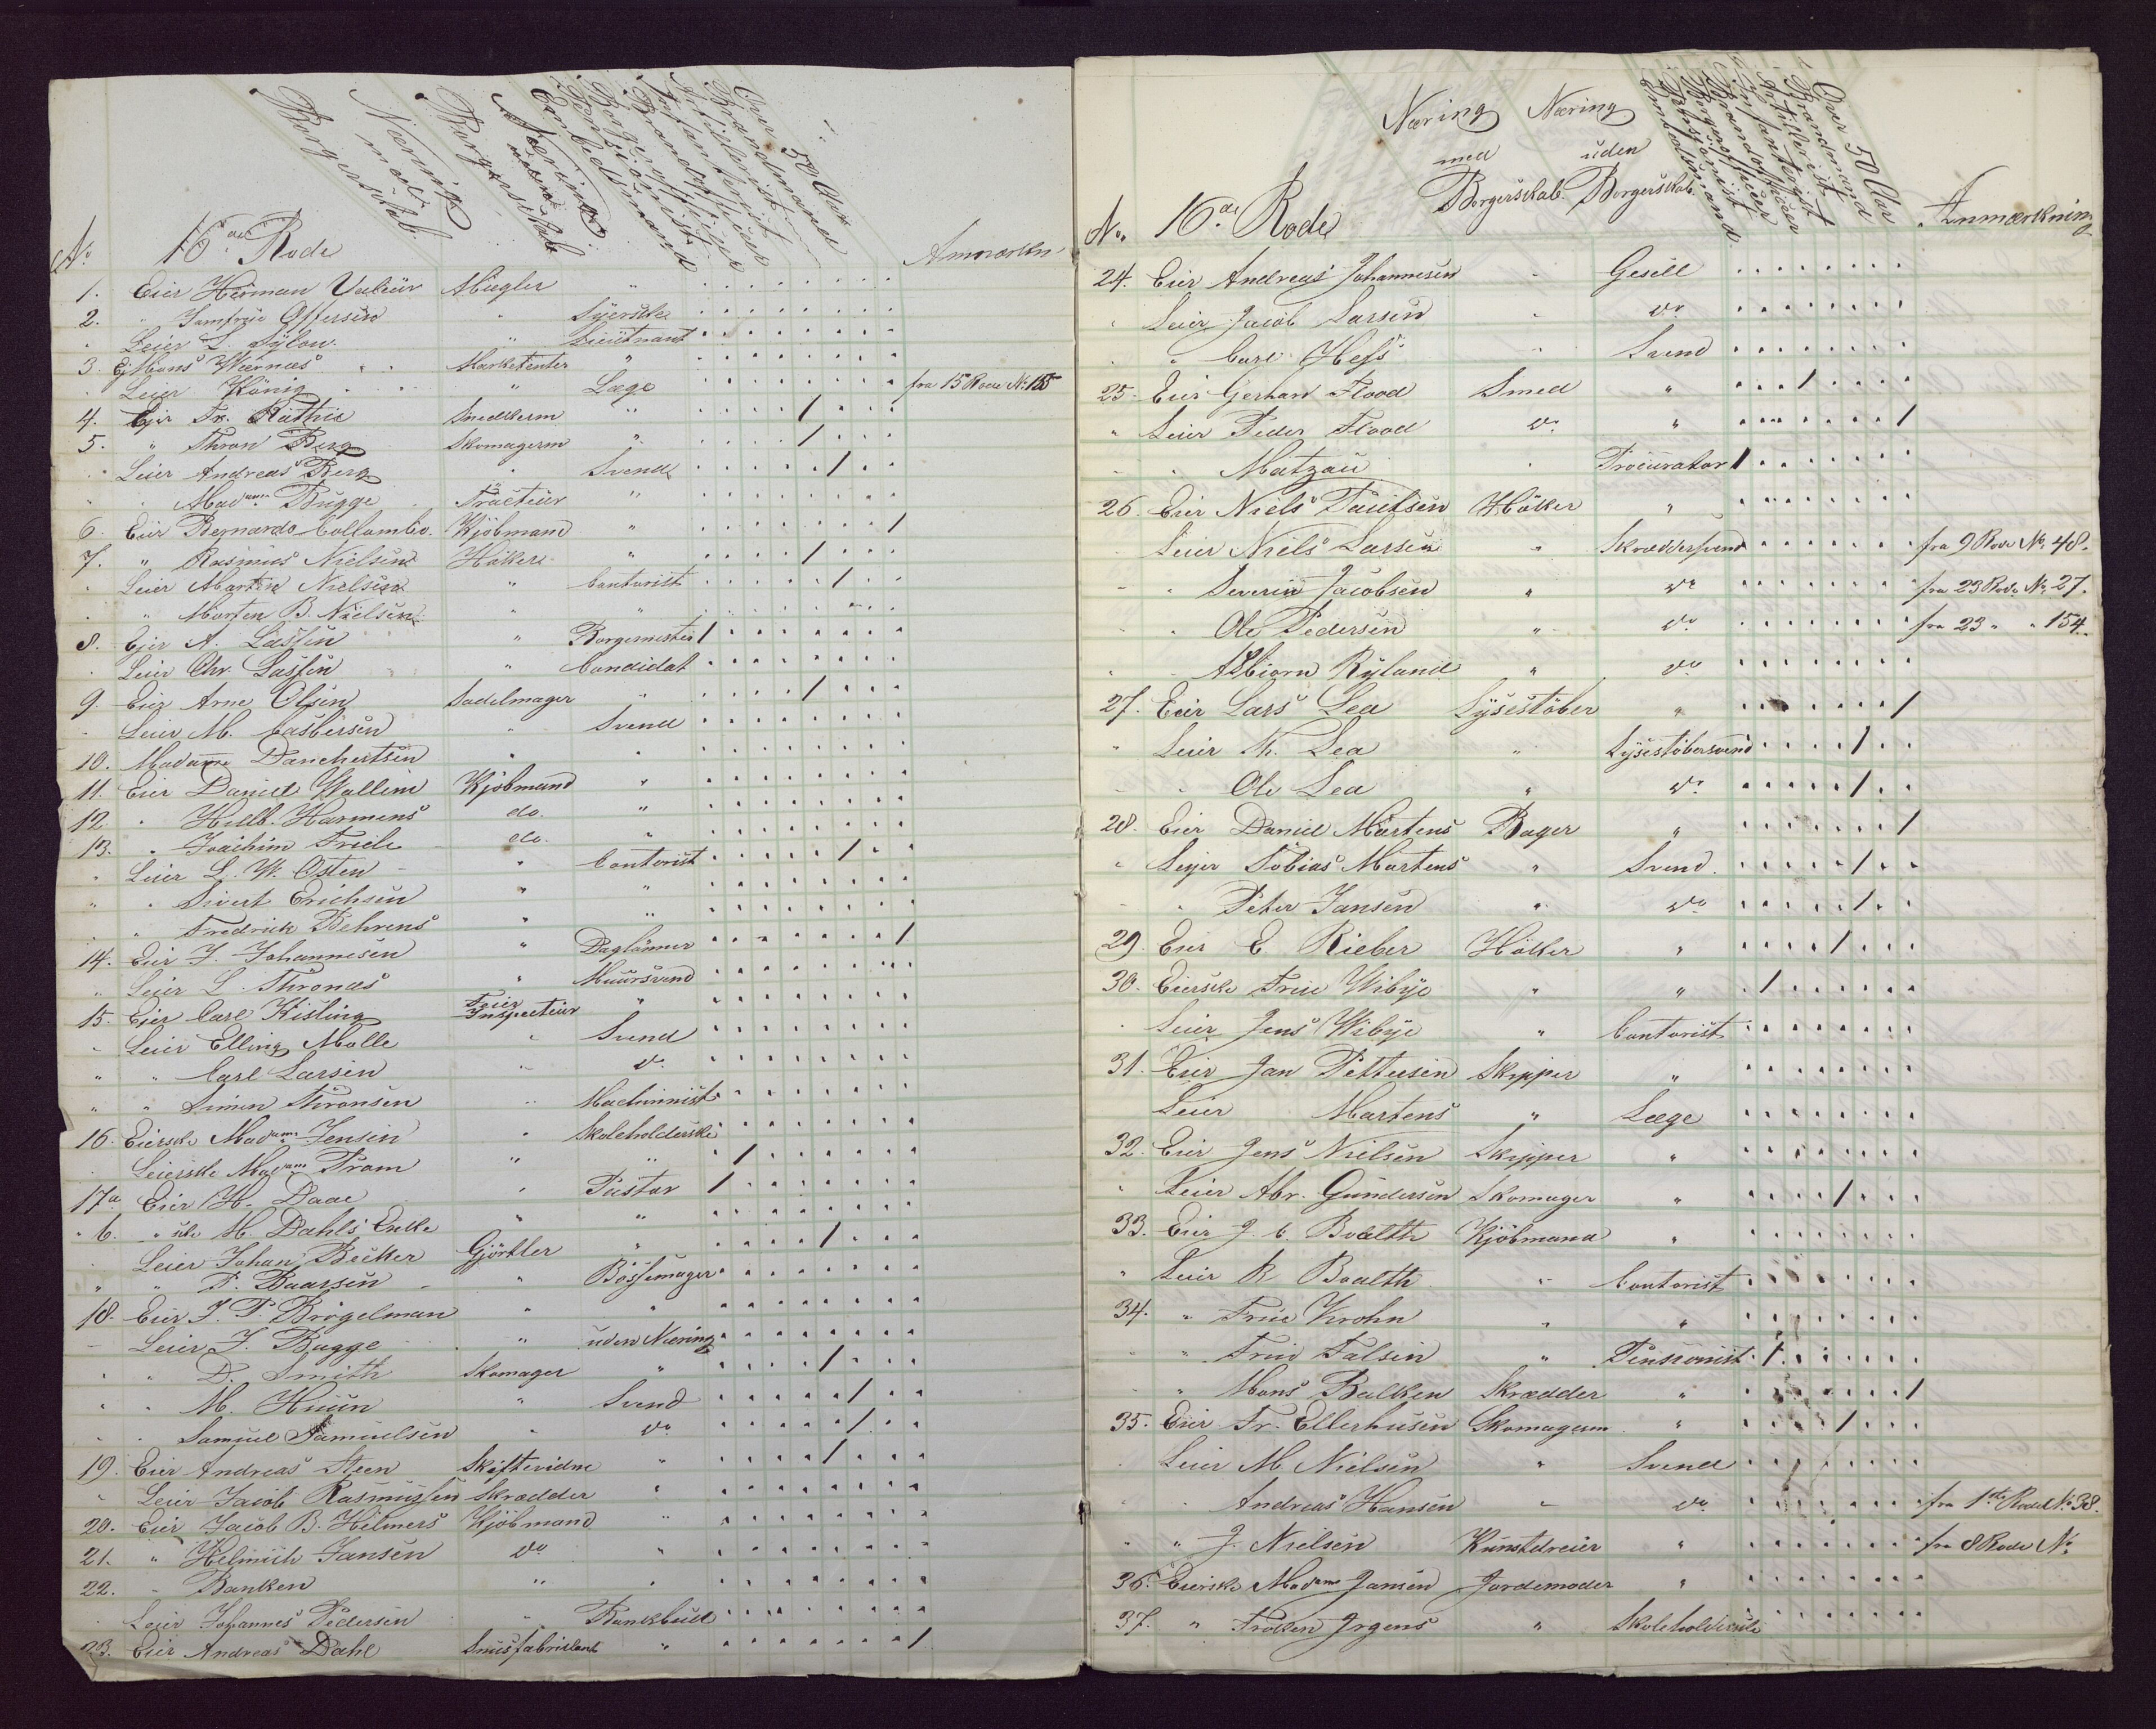 Næring med Borgerskab.
Næring uden Borgerskab
Embedsmand
Pensionist
Borgerofficer
Brandofficer
Infanterist
Artillerist
Brandmand
Over 50 Aar
No 16de Rode Anmærkn
1. Eier Herman Valeur Mægler "
2. " Jomfrue Offersen " Syerske
" Leier L. Sylow. " Lieutnant
3. Ej Mons Wernæs Marketenter "
" Leier König " Læge fra 15 Rode No 155
4. Ejer Fr. Rüthie Snedkerm " /
5. " Thron Berg Skomagerm " /
" Leier Andreas Berg " Svend /
" " Madame Bugge Tracteur "
6. Eier Bernardo Collambo. Kjöbmand " /
7. " Rasmus Nielsen Höker " /
" Leier Martin Nielsen " Contorist /
" " Morten B. Nielsen " "
8. Ejer A. Lassen " Borgemester /
" Leier Chr. Lassen " Candidat
9. Eier Arne Olsen Sadelmager " /
" Leier M. Casbersen " Svend
10. Madame Danchertsen " "
11. Eier Daniel Wallem Kjöbmand "
12 " Hilb. Harmens do. "
13. " Joachim Friele do. "
" Leier L. W. Osten " Contorist /
" " Sivert Erichsen " "
" " Fredrick Behrens " "
14. Eier J. Johannesen " Daglönner /
" Leier L. Thronæs " Muursvend
15. Eier Carl Kisling Feier Inspecteur "
" Leier Elling Molle " Svend
" " Carl Larsen " do
" " Simen Thronsen " Machinnist
16. Eierske Madame Jensen " Skoleholderske
Leierske Madame Tram " " /
17a Eier H. Daae " Pastor /
" b. " ske M. Dahls Enke " "
Leier Johan Becker Gjörtler " /
" " P. Baarsen " Bössemager
18. Eier J. P. Brögelman " "
" Leier J. Bugge " uden Næring
" " D. Smith Skomager " /
" " M. Huun " Svend /
" " Samuel Samuelsen " do /
19. Eier Andreas Steen Skiftevidne " /
" Leier Jacob Rasmussen Skrædder "
20. Eier Jacob B. Hilmers Kjöbmand "
21. " Helmich Jansen do "
22. " Banken " "
" Leier Johannes Pedersen " Bankbud
23. Eier Andreas Dahl Snusfabrikant " /
No. 16de Rode Næring med Borgerskab. Næring uden Borgerskab
Embedsmand
Pensionist
Borgerofficer
Brandofficer
Infanterist
Artillerist
Brandmand
Over 50 Aar
Anmærkning
24. Eier Andreas Johannesen " Gesell
" Leier Jacob Larsen " do
" " Carl Hess " Svend
25. Eier Gerhard Flood Smed " /
" Leier Peder Flood do " /
" " Matzau " Procurator /
26. Eier Niels Paulsen Höker "
Leier Niels Larsen " Skræddersvend fra 9 Rode No. 48.
" " Severin Jacobsen " do fra 23 Rode No 27.
" " Ole Pedersen " do fra 23 " " 154.
" " Asbiorn Ryland " do
27. Eier Lars Lea Lysestöber " /
" Leier N. Lea " Lysestöbersvend /
" " Ole Lea " do /
28. Eier Daniel Martens Bager " /
" Leyer Tobias Martens " Svend. /
" " Peter Jansen " do /
29. Eier E. Rieber Höker " /
30. Eierske Frue Wibye " " /
" Leier Jens Wibye " Contorist
31. Eier Jan Pettersen Skipper "
Leier Martens " Læge
32. Eier Jens Nielsen Skipper "
" Leier Abr. Gundersen Skomager " /
33. Eier J. C. Boalth Kjöbmand "
" Leier R Boalth " Contorist
34. " Frue Krohn " "
" " Frue Falsen " Pensionist /
" " Mons Balken Skrædder " /
35. Eier Fr. Ellerhusen Skomagerm " /
" Leier M. Nielsen " Svend
" " Andreas Hansen " do fra 1ste Rode No 38.
" " J. Nielsen Kunstdreier " fra 8 Rode No
36. Eierske Madame Jansen Jordemoder "
37. " Fröken Jrgens " Skoleholderske